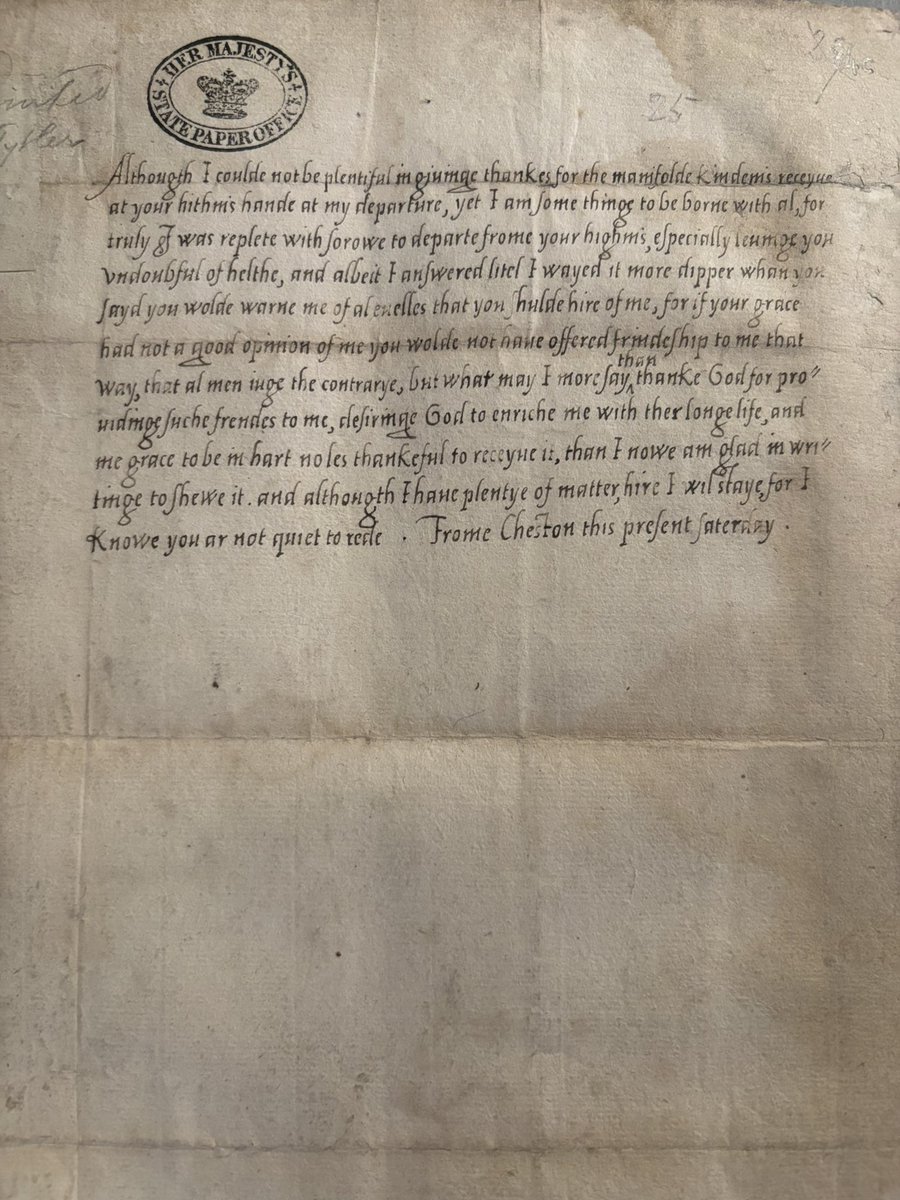 HER MAJESTY'S
STATE PAPER OFFICE
25
Although I coulde not be plentiful in giuinge thankes for the manifolde kindenis receyue
at your hithnis hande at my departure, yet I am some thinge to be borne with al, for
truly I was replete with sorowe to departe frome your highnis, especially leuinge you
vndoubful of helthe, and albeit I answered litel I wayed it more dipper whan you
sayd you wolde warne me of al euelles that you shulde hire of me, for if your grace
had not a good opinion of me you wolde not haue offered frindeship to me that
way, that al men iuge the contrarye, but what may I more say than thanke God for pro〃
uidinge suche frendes to me, desiringe God to enriche me with ther longe life, and
me grace to be in hart no les thankeful to receyue it, than I nowe am glad in wri〃
tinge to shewe it. and although I haue plentye of matter, hire I wil staye, for I
Knowe you ar not quiet to rede . Frome Cheston this present saterday .